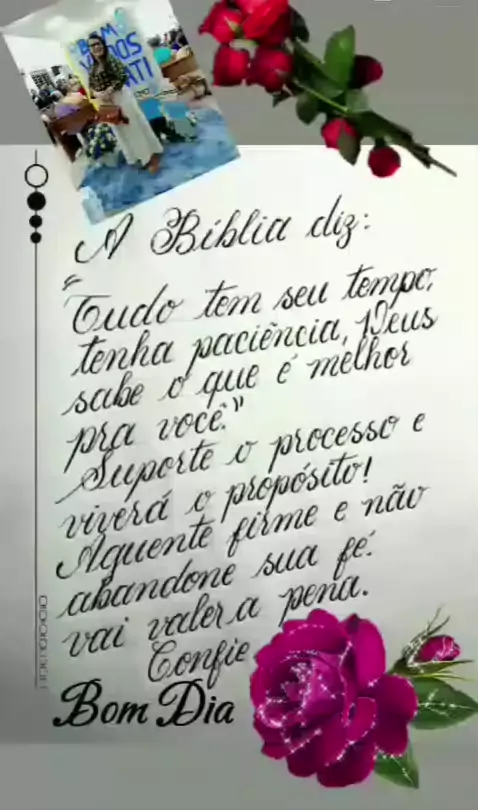 BEM
A Bíblia diz:
"Tudo tem seu tempo,
tenha paciência, Deus
sabe o que é melhor
pra você."
Suporte o processo e
viverá o propósito!
Aguente firme e não
abandone sua fé.
vai valer a pena.
Confie
Bom Dia